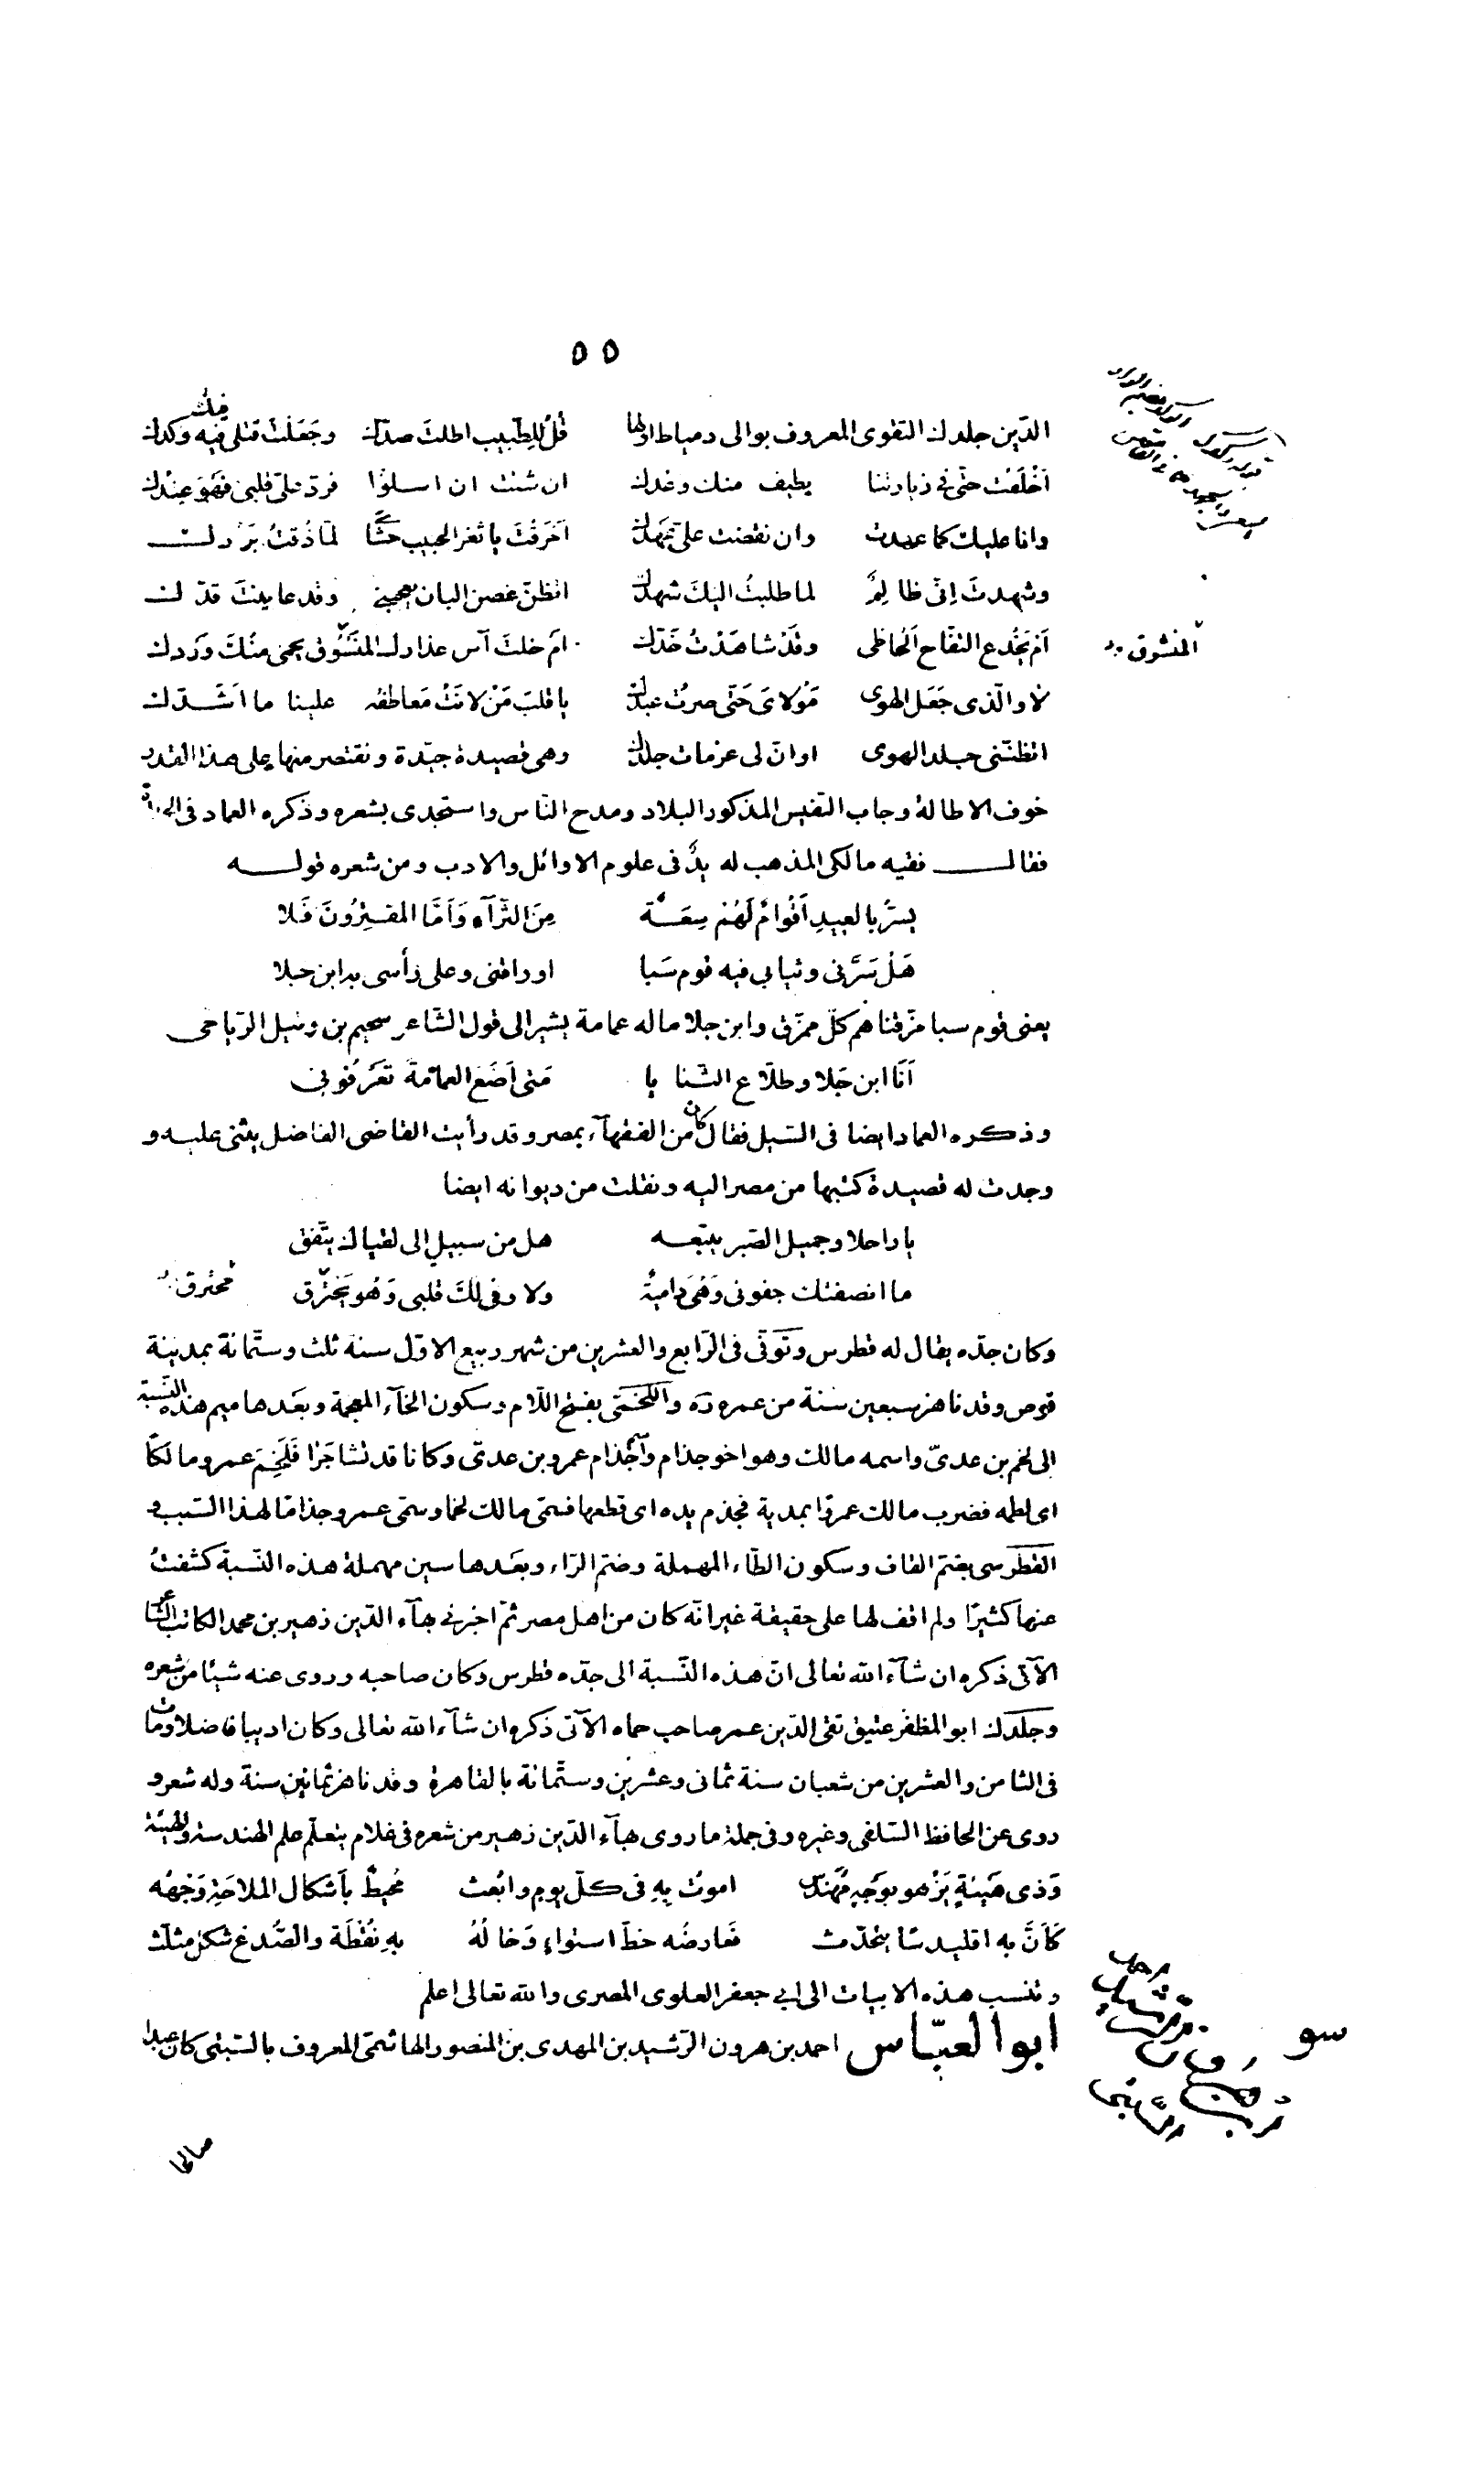 ٥٥
الدّين جلدك التقوى المعروف بوالى دمياط اولها قُلْ للِطَّبيب اطلتَ صدّك وجَعَلْتَ قتلى فيه وكدك
فيك
اَخْلَفْتَ حتّى فى زيارتنا بطيف منك وعدك ان شئت ان اسلوا فردّ علىّ قلبى فهَوَ عِنْدك
وانا عليك كما عهدت وان نقضت علىّ عَهدك اَحَرقْتَ يا ثغر الحبيب حشاى لمّا ذُقتُ بَرْدك
وشهدتَ اِنّى ظالِمٌ لما طلبتُ اليكَ شهدك اتظنّ غصن البان يعجبنى وقد عاينتَ قدّك
اَم يَخْدع التفّاح اَلحاظى وقَدْ شاهَدْتُ خَدّك اَم خلتَ آس عذارك المنشّوق يحمى منْكَ وَردك
المنشوق
لا والّذى جَعَل الهوى مَوْلاىَ حَتّى صرتُ عبدك يا قلبَ مَنْ لانَتْ مَعاطفُه علينا ما اَشَدّك
اتظنّنى جلد الهوى او انّ لى عزمات جلدك وهى قصيدة جيّدة ونقتصر منها على هذا القدر
خوف الاطالة وجاب النفيس المذكور البلاد ومدح النّاس واستجدى بشعره وذكره العماد فى الخريدة
فقال فقيه مالكى المذهب له يدٌ فى علوم الاوائل والادب ومن شعره قوله
يسرُّ بالعيدِ اَقْوامٌ لَهُمْ سِعَةٌ مِنَ الثَّرآءِ وَاَمَّا المقتِرُونَ فَلا
هَلْ سَرَّنى وثيابى فيه قوم سَبا او راقنى وعلى رأسى به ابن جلا
يعنى قوم سبا مزّقناهم كلّ ممزّق وابن جلا ماله عمامة يشير الى قول الشّاعر سحيم بن وثيل الرّياحى
اَنَا ابن جَلا وطلّاع الثّنايا مَتى اَضَع العمامَة تَعَرفُونى
وذكره العماد ايضا فى السّيل فقال كان من الفقهآء بمصر وقد رأيت القاضى الفاضل يثنى عليه و
وجدت له قصيدة كتبها من مصر اليه ونقلت من ديوانه ايضا
يا راحلا وجميل الصّبر يتبعه هل من سبيل الى لقياك يتّفق
ما انصفتك جفونى وَهْىَ دامية ولا وفى لكَ قلبى وَهُو يَحْترَق
محترق
وكان جدّه يقال له قطرس وتوَفّى فى الرّابع والعشرين من شهر ربيع الاوّل سنة ثلث وستّمائة بمدينة
قوص وقد ناهز سبعين سنة من عمره ره واللَّخمّى بفتح اللّام وسكون الخآء المعجمة وبعَدها ميم هذه النّسبة
الى لخم بن عدىّ واسمه مالك وهو اخو جذام واسم جُذام عمرو بن عدىّ وكانا قد تشاجَرا فَلَخَمَ عمرو مالكًا
اى لطمه فضرب مالك عمرًا بمدية فجذم يده اى قطعها فسمّى مالك لخما وسمّى عمرو جذاما لهذا السّبب و
القطرسى بضمّ القاف وسكون الطّاء المهملة وضمّ الرّاء وبعَدها سين مهملة هذه النّسبة كشفتُ
عنها كثيرًا ولم اقف لها على حقيقة غير انّه كان من اهل مصر ثمّ اخبرنى بهآء الدّين زهير بن محمد الكاتب الشّاعر
الآتى ذكره ان شآء الله تعالى انّ هذه النّسبة الى جدّه قطرس وكان صاحبه وروى عنه شيئا من شعره
وجلدك ابو المظفّر عتيق تقى الدّين عمر صاحب حماه الآتى ذكره ان شآء الله تعالى وكان اديبا فاضلا ومات
فى الثامن والعشرين من شعبان سنة ثمانى وعشرين وستّمائة بالقاهرة وقد ناهز ثمانين سنة وله شعر و
روى عن الحافظ السّلفى وغيره وفى جملة ما روى بهآء الدّين زهير من شعره فى غلام يتعلّم علم الهندسة والهيئة
وَذى هَيئةٍ يَزهو بوَجهٍ مُهَندَس اموتُ بِهِ فى كلّ يومٍ وابُعث مُحيطٌ بأَشكال الملاحَةِ وَجْهُه
كَأَنَّ به اقليدسًا يتحدّث فَعارضُه خطّ استواءٍ وَخالُهُ بِهِ نُقْطَة والصُّدغ شكل مثلّث
وتنسب هذه الابيات الى ابى جعفر العلوى المصرى والله تعالى اعلم
ابو العبّاس احمد بن هرون الرّشيد بن المهدى بن المنصور الهاشمىّ المعروف بالسّبتى كان عبدا
سو
صالحا